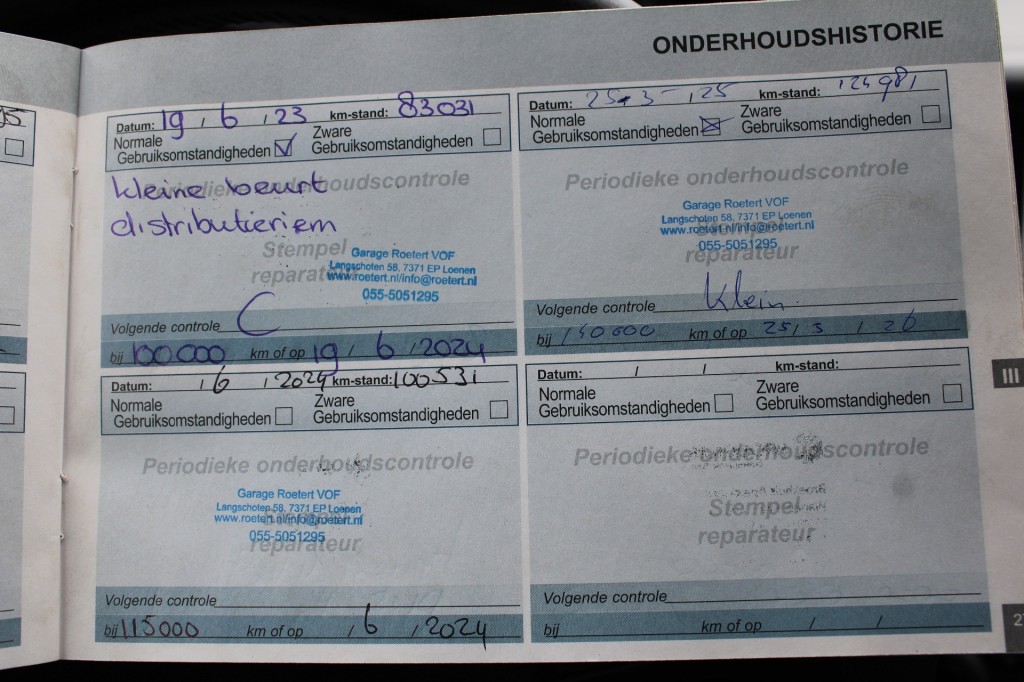 ONDERHOUDSHISTORIE
Datum: 19 / 6 / 23 km-stand: 83031
Normale Gebruiksomstandigheden Zware Gebruiksomstandigheden
kleine beurt
distributieriem
Periodieke onderhoudscontrole
Stempel reparateur
Garage Roetert VOF
Langschoten 58, 7371 EP Loenen
www.roetert.nl/info@roetert.nl
055-5051295
Volgende controle C
bij 100.000 km of op 19 / 6 / 2024
Datum: 25-3-/25 km-stand: 124981
Normale Gebruiksomstandigheden Zware Gebruiksomstandigheden
Periodieke onderhoudscontrole
Garage Roetert VOF
Langschoten 58, 7371 EP Loenen
www.roetert.nl/info@roetert.nl
055-5051295
Stempel reparateur
Volgende controle Klein
bij 140000 km of op 25 / 3 / 26
Datum: / 6 / 2024 km-stand: 100531
Normale Gebruiksomstandigheden Zware Gebruiksomstandigheden
Periodieke onderhoudscontrole
Garage Roetert VOF
Langschoten 58, 7371 EP Loenen
www.roetert.nl/info@roetert.nl
055-5051295
Stempel reparateur
Volgende controle
bij 115000 km of op / 6 / 2024
Datum: / /  km-stand:
Normale Gebruiksomstandigheden Zware Gebruiksomstandigheden
Periodieke onderhoudscontrole
Stempel
reparateur
Volgende controle
bij km of op / /
III